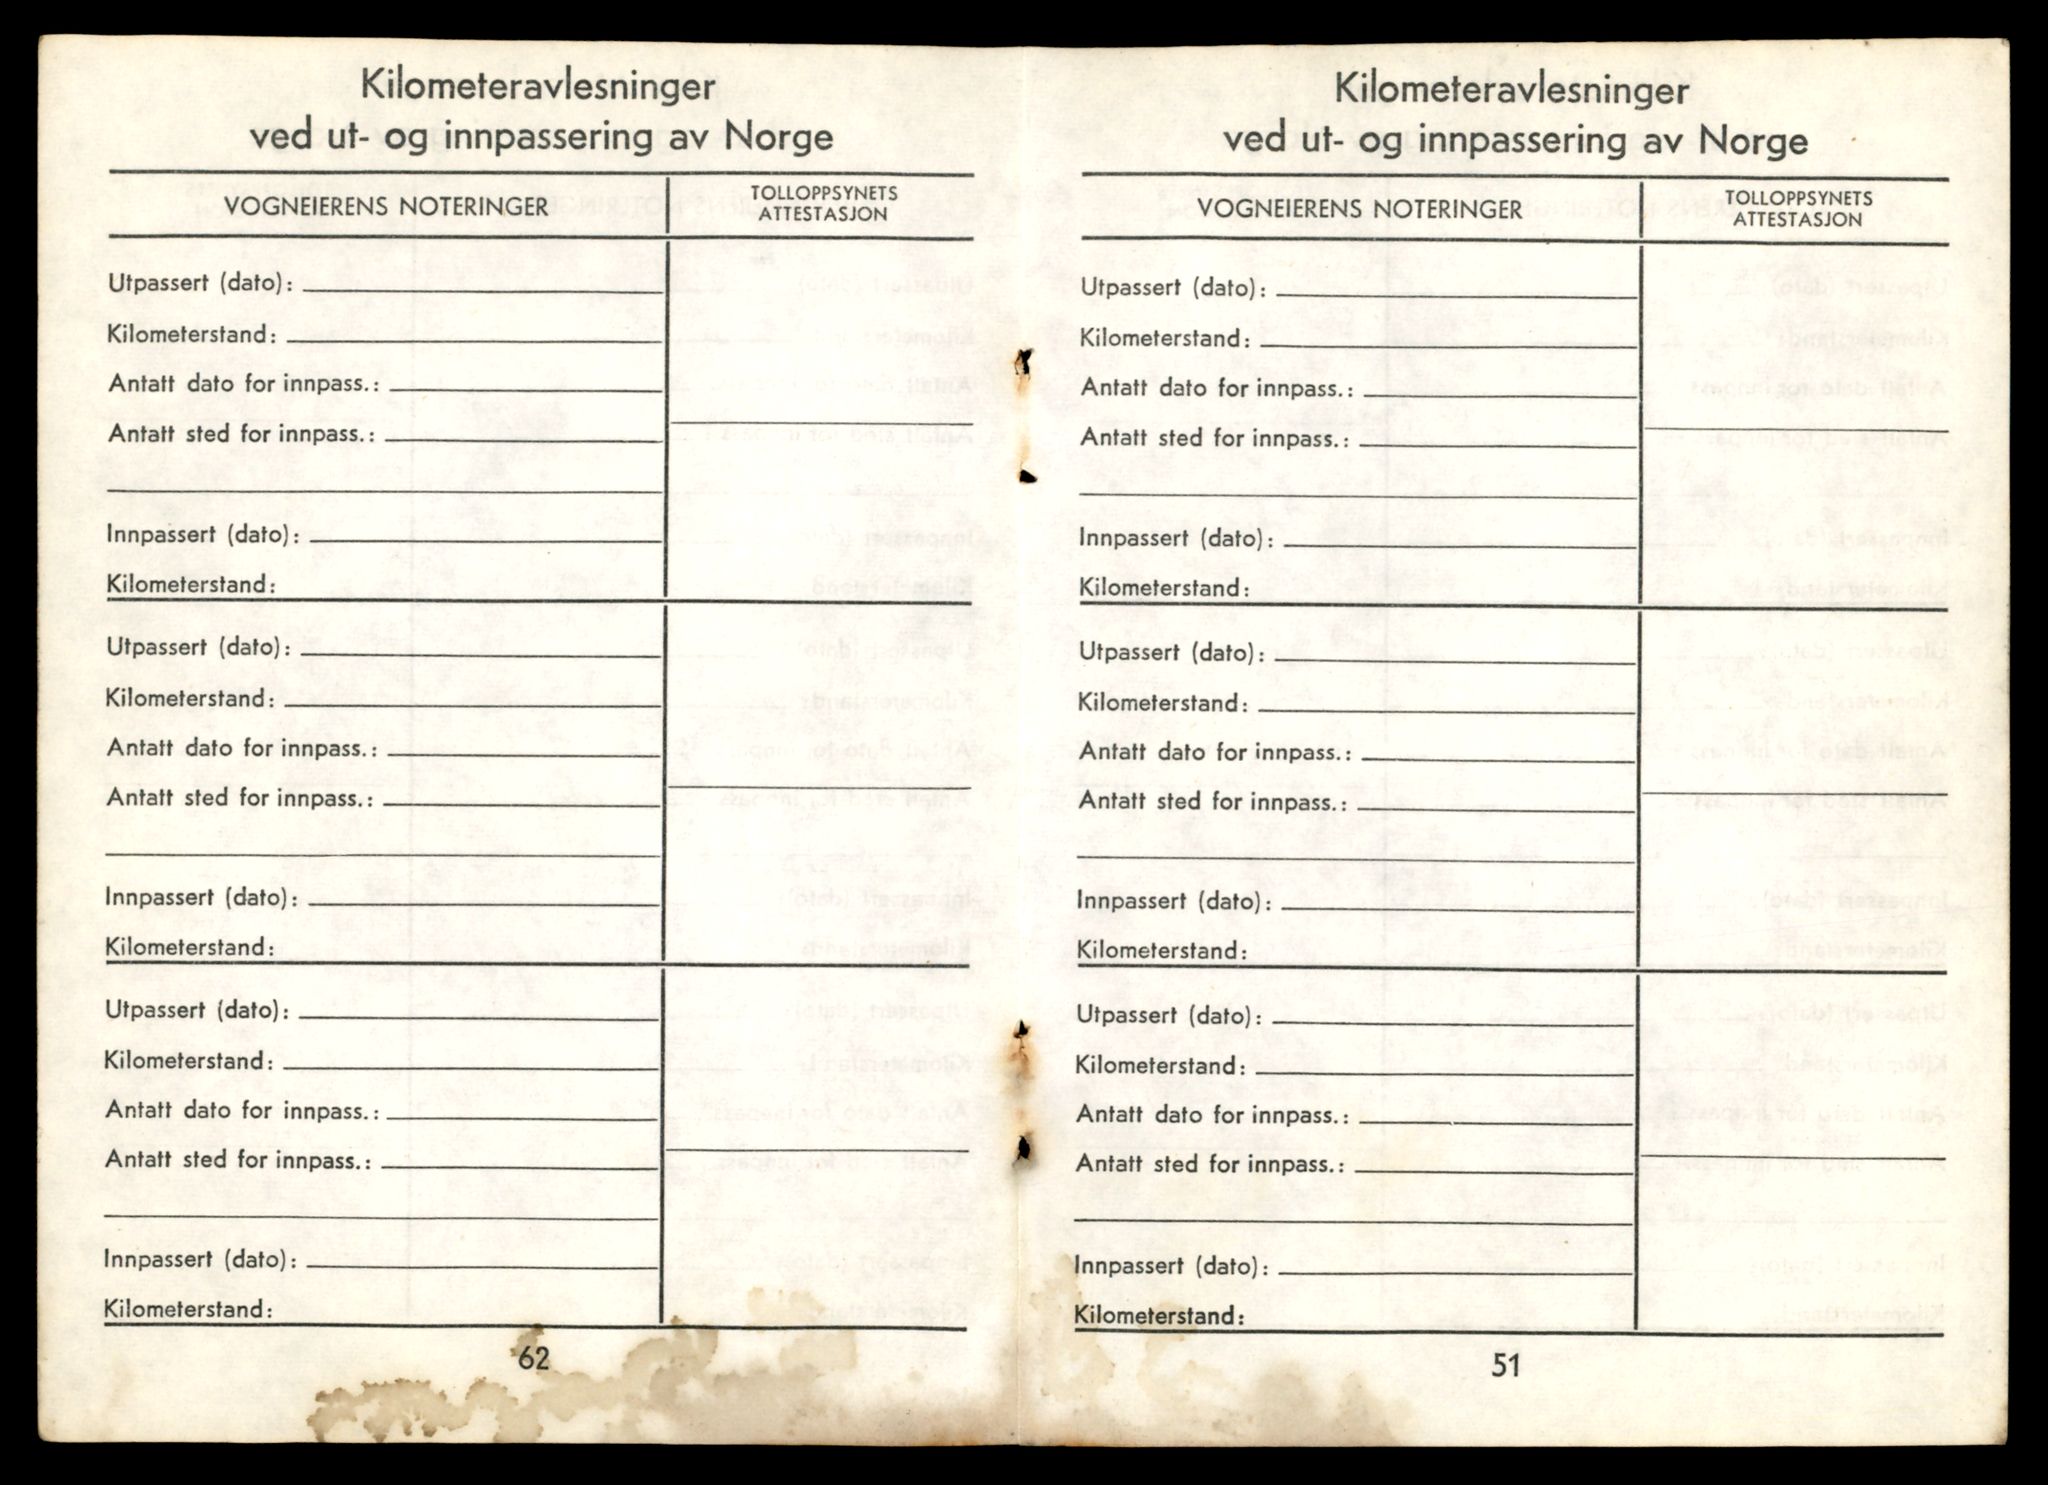 Kilometeravlesninger
ved ut- og innpassering av Norge
VOGNEIERENS NOTERINGER
TOLLOPPSYNETS
ATTESTASJON
Utpassert (dato):
Kilometerstand:
Antatt dato for innpass.:
Antatt sted for innpass.:
Innpassert (dato):
Kilometerstand:
Utpassert (dato):
Kilometerstand:
Antatt dato for innpass.:
Antatt sted for innpass.:
Innpassert (dato):
Kilometerstand:
Utpassert (dato):
Kilometerstand:
Antatt dato for innpass.:
Antatt sted for innpass.:
Innpassert (dato):
Kilometerstand:
62
Kilometeravlesninger
ved ut- og innpassering av Norge
VOGNEIERENS NOTERINGER
TOLLOPPSYNETS
ATTESTASJON
Utpassert (dato):
Kilometerstand:
Antatt dato for innpass.:
Antatt sted for innpass.:
Innpassert (dato):
Kilometerstand:
Utpassert (dato):
Kilometerstand:
Antatt dato for innpass.:
Antatt sted for innpass.:
Innpassert (dato):
Kilometerstand:
Utpassert (dato):
Kilometerstand:
Antatt dato for innpass.:
Antatt sted for innpass.:
Innpassert (dato):
Kilometerstand:
51